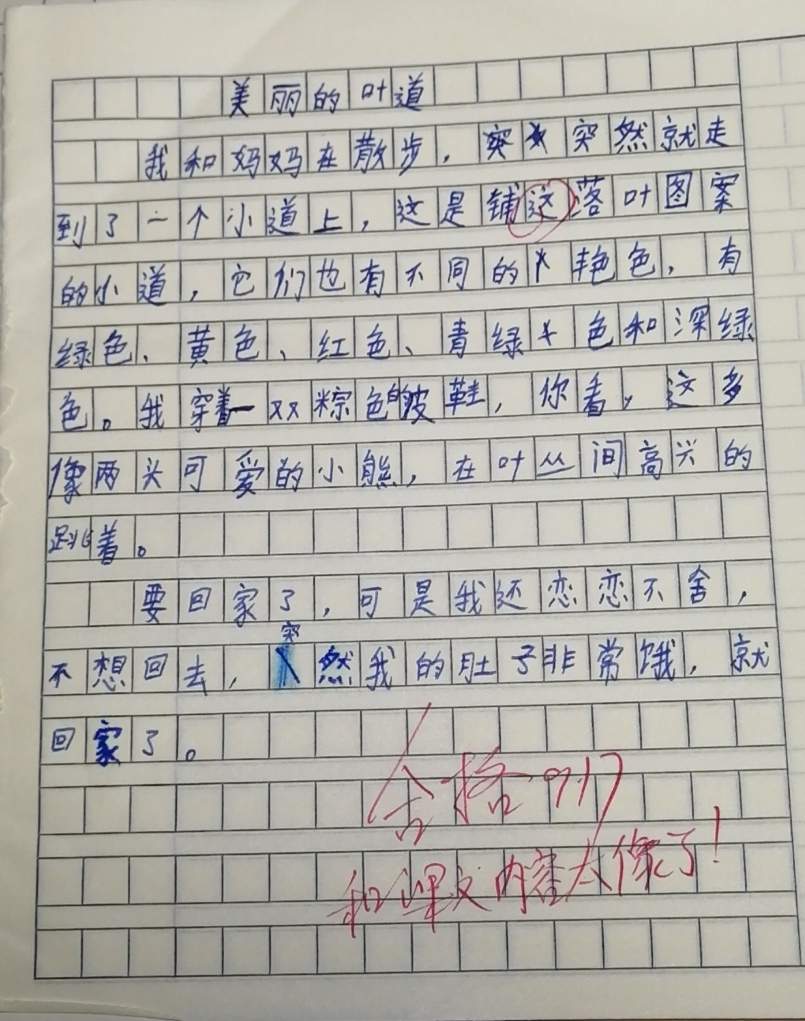 美丽的叶道
我和妈妈在散步，突突然就走
到了一个小道上，这是铺这落叶图案
的小道，它们也有不同的艳色，有
绿色、黄色、红色、青绿色和深绿
色。我穿着一双粽色的皮鞋，你看，这多
像两头可爱的小熊，在叶丛间高兴的
跳着。
要回家了，可是我还恋恋不舍，
不想回去，突然我的肚子非常饿，就
回家了。
合格 9.17
和课文内容太像了！